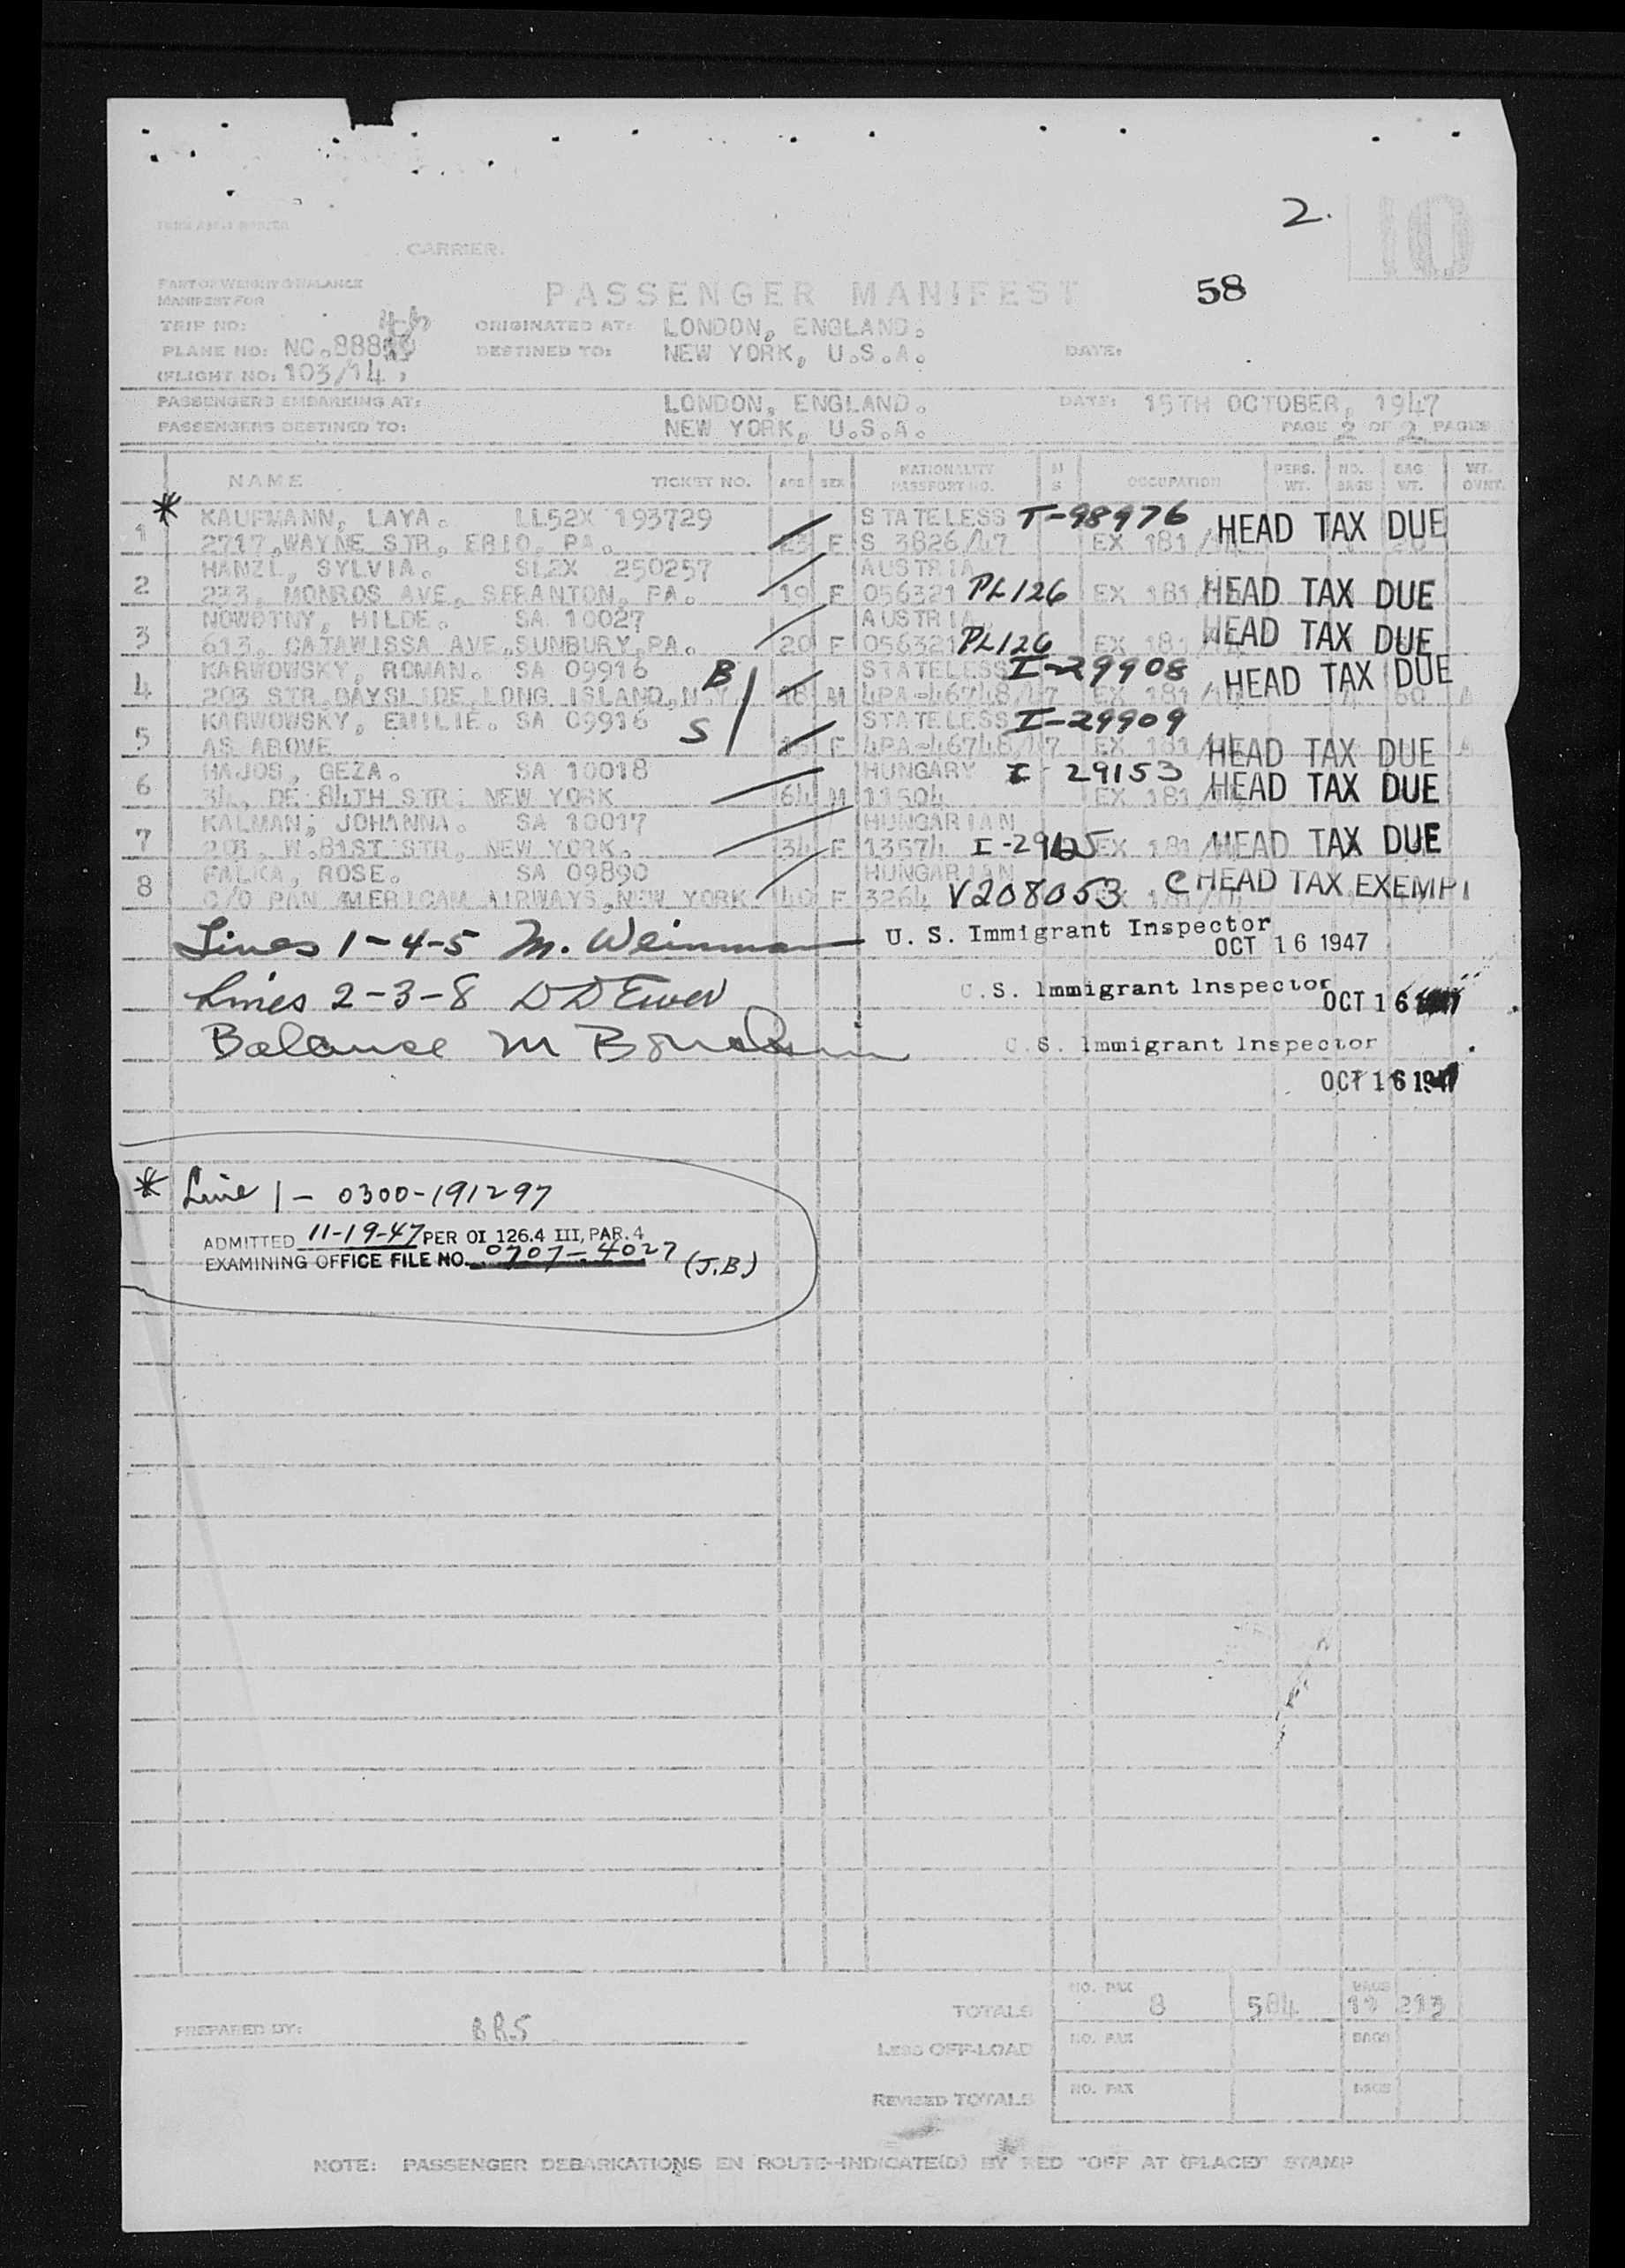 2.
10
CARRIER.
PART OF WEIGHT & BALANCE
MANIFEST FOR
PASSENGER MANIFEST
58
TRIP NO:
ORIGINATED AT: LONDON, ENGLAND.
PLANE NO: NC.888
DESTINED TO: NEW YORK, U.S.A.
DATE:
(FLIGHT NO: 103/14 )
PASSENGERS EMBARKING AT: LONDON, ENGLAND. DATE: 15TH OCTOBER, 1947
PASSENGERS DESTINED TO: NEW YORK, U.S.A. PAGE 2 OF 2 PAGES
NAME TICKET NO. AGE SEX NATIONALITY PASSPORT NO. M S OCCUPATION PERS. WT. NO. BAGS BAG WT. WT. OVNT.
* 1 KAUFMANN, LAYA. LL52X 193729 STATELESS T-98976 HEAD TAX DUE
2717,WAYNE STR, ERIO, PA. F S 3826/47 EX 181/
2 HANZL, SYLVIA. SL2X 250257 AUSTRIA
233, MONROS AVE, SERANTON, PA. 19 F 056321 PL126 EX 181 HEAD TAX DUE
3 NOWOTNY, HILDE. SA 10027 AUSTRIA. HEAD TAX DUE
613, CATAWISSA AVE.,SUNBURY,PA. 20 F 056321 PL126 EX 181
4 KARWOWSKY, ROMAN. SA 09916 B STATELESS I-29908 HEAD TAX DUE
203 STR,BAYSLIDE,LONG ISLAND,N.Y. 18 M 4PA-46748/47 EX 181/ 60 A
5 KARWOWSKY, EMILIE. SA 09916 S STATELESS I-29909
AS ABOVE F 4PA-46748/47 EX 181/ HEAD TAX DUE A
6 HAJOS, GEZA. SA 10018 HUNGARY I-29153 HEAD TAX DUE
34, DE 84TH STR: NEW YORK 64 M 11504 EX 181/
7 KALMAN, JOHANNA. SA 10017 HUNGARIAN
203, W.81ST STR, NEW YORK. 34 F 13574 EX 181/ HEAD TAX DUE
8 FALKA, ROSE. SA 09890 HUNGARIAN C HEAD TAX EXEMPT
C/O PAN AMERICAM AIRWAYS,NEW YORK 40 F 3264 V208053
Lines 1-4-5 M. Weinman U. S. Immigrant Inspector
OCT 16 1947
Lines 2-3-8 U.S. Immigrant Inspector
OCT 16 1947
Balance M U.S. Immigrant Inspector
OCT 16 1947
* Line 1 - 0300-191297
ADMITTED 11-19-47 PER OI 126.4 III, PAR. 4
EXAMINING OFFICE FILE NO. 0707-4027 (J.B.)
TOTALS NO. PAX 8 584 BAGS 11 213
PREPARED BY: BRS
LESS OFF-LOAD NO. PAX BAGS
REVISED TOTALS NO. PAX BAGS
NOTE: PASSENGER DEBARKATIONS EN ROUTE-INDICATE(D) BY RED "OFF AT (PLACE)" STAMP